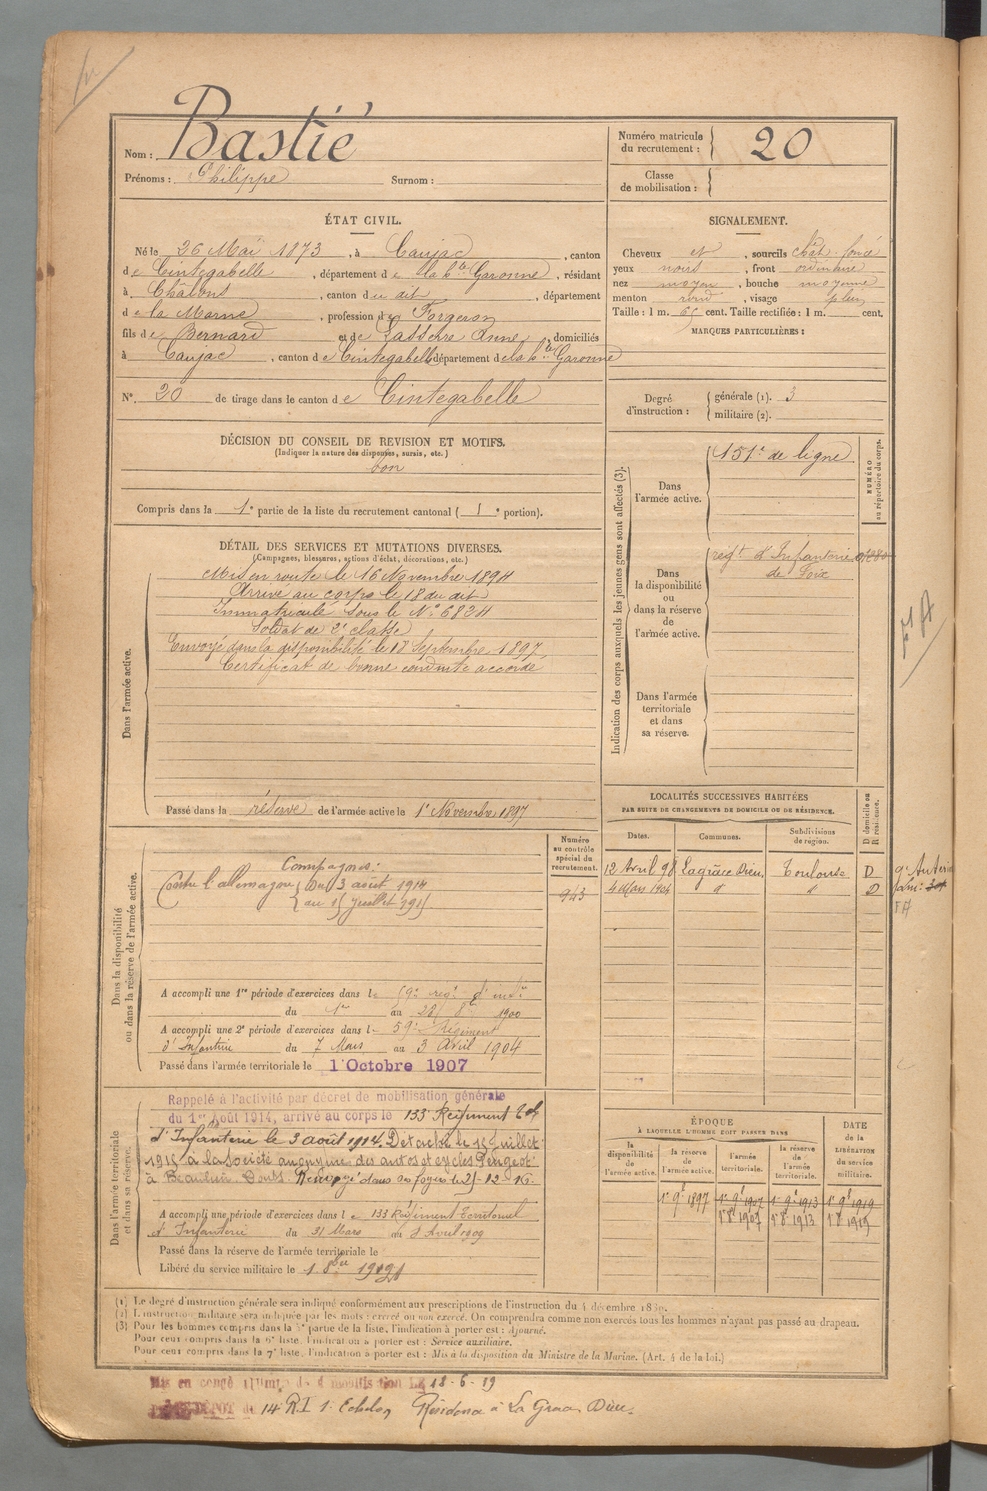 Nom : Bastié
Prénoms : Philippe Surnom :
Numéro matricule du recrutement : 20
Classe de mobilisation :
ÉTAT CIVIL.
Né le 26 Mai 1873, à Caujac, canton
de Cintegabelle, département de la hte Garonne, résidant
à Châlons, canton du dit, département
de la Marne, profession de Forgeron
fils de Bernard et de Lasserre Anne, domiciliés
à Caujac, canton de Cintegabelle département de la hte Garonne
N°. 20 de tirage dans le canton de Cintegabelle
SIGNALEMENT.
Cheveux et, sourcils chât. foncé
yeux noirs, front ordinaire
nez moyen, bouche moyenne
menton rond, visage plein
Taille : 1 m. 65 cent. Taille rectifiée : 1 m. cent.
MARQUES PARTICULIÈRES :
Degré d'instruction : générale (1). 3
militaire (2).
DÉCISION DU CONSEIL DE REVISION ET MOTIFS.
(Indiquer la nature des dispenses, sursis, etc.)
bon
Compris dans la 1e partie de la liste du recrutement cantonal ( 1 e portion).
Indication des corps auxquels les jeunes gens sont affectés (3).
NUMÉRO au répertoire du corps.
Dans l'armée active. 151e de ligne
Dans la disponibilité ou dans la réserve de l'armée active.
regt d'Infanterie
de Foix
Dans l'armée territoriale et dans sa réserve.
FA
DÉTAIL DES SERVICES ET MUTATIONS DIVERSES.
(Campagnes, blessures, actions d'éclat, décorations, etc.)
Dans l'armée active.
Mis en route le 16 Novembre 1894
Arrivé au corps le 18 du dit
Immatriculé sous le N° 6824
Soldat de 2e classe
Envoyé dans la disponibilité le 18 Septembre 1897
Certificat de bonne conduite accordé
Passé dans la réserve de l'armée active le 1er Novembre 1897
Dans la disponibilité ou dans la réserve de l'armée active.
Numéro au contrôle spécial du recrutement.
943
Campagnes :
Contre l'allemagne du 3 août 1914
au 15 Juillet 1915
A accompli une 1re période d'exercices dans le 59e regt d'infie
du 1er au 28 8bre 1900
A accompli une 2e période d'exercices dans l- 59e Régiment
d'Infanterie du 7 Mars au 3 Avril 1904
Passé dans l'armée territoriale le 1 Octobre 1907
LOCALITÉS SUCCESSIVES HABITÉES
PAR SUITE DE CHANGEMENTS DE DOMICILE OU DE RÉSIDENCE.
Dates. Communes. Subdivisions de région. D domicile ou R résidence.
12 Avril 98 Lagrâce Dieu, Toulouse D
4 Mars 1904 " " D
FA
Dans l'armée territoriale et dans sa réserve.
Rappelé à l'activité par décret de mobilisation générale
du 1er Août 1914, arrivé au corps le 133 Régiment Tal
d'Infanterie le 3 août 1914. Détaché le 15 Juillet
1915 à la Société anonyme des autos et cycles Peugeot
à Beaulieu Doubs. Renvoyé dans ses foyers le
A accompli une période d'exercices dans le 133 Régiment Territorial
d'Infanterie du 31 Mars au 8 Avril 1909
Passé dans la réserve de l'armée territoriale le
Libéré du service militaire le 1 8bre
ÉPOQUE
À LAQUELLE L'HOMME DOIT PASSER DANS
la disponibilité de l'armée active. la réserve de l'armée active. l'armée territoriale. la réserve de l'armée territoriale.
DATE de la LIBÉRATION du service militaire.
1er 9e 1897 1er 9e 1907 1er 9e 1913 1er 9e 1919
1r 8e 1907 1r 8e 1913 1r 8e 1919
(1) Le degré d'instruction générale sera indiqué conformément aux prescriptions de l'instruction du 4 décembre 1889.
(2) L'instruction militaire sera indiquée par les mots : exercé ou non exercé. On comprendra comme non exercés tous les hommes n'ayant pas passé au drapeau.
(3) Pour les hommes compris dans la 5e partie de la liste, l'indication à porter est : Ajourné.
Pour ceux compris dans la 6e liste, l'indication à porter est : Service auxiliaire.
Pour ceux compris dans la 7e liste, l'indication à porter est : Mis à la disposition du Ministre de la Marine. (Art. 4 de la loi.)
Mis en congé illimité de démobilisation le 18-6-19
DÉPOT du 14 R.I 1r Echelon Résidence à La Grace Dieu.